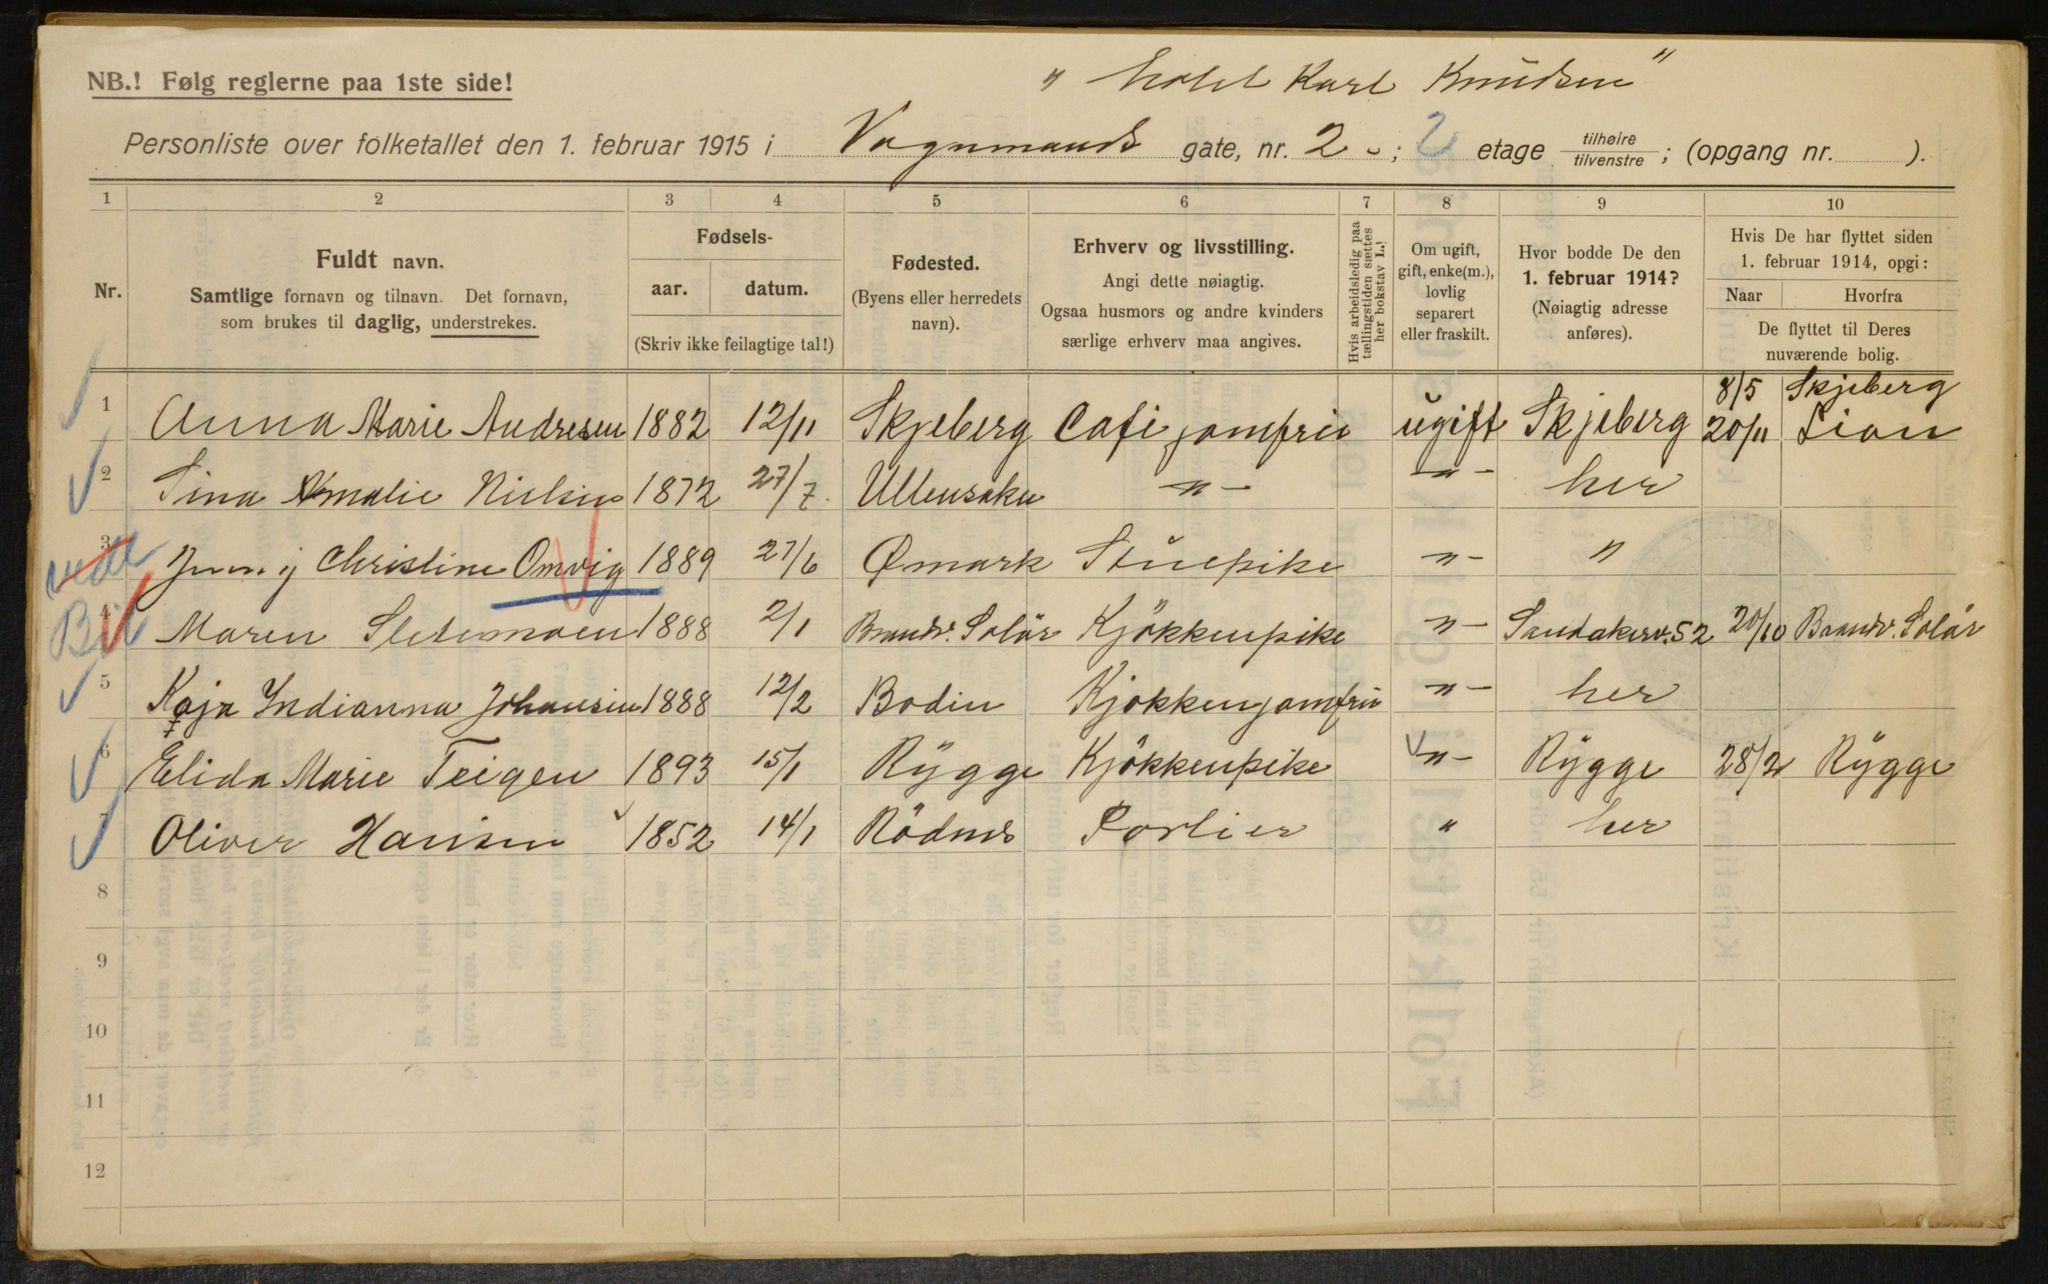 NB.! Følg reglerne paa 1ste side!
" Hotel Karl Knudsen "
Personliste over folketallet den 1. februar 1915 i Vognmands gate, nr. 2 -; 2 etage tilhøire/tilvenstre; (opgang nr. ).
1 2 3 4 5 6 7 8 9 10
Nr.
Fuldt navn.
Samtlige fornavn og tilnavn. Det fornavn,
som brukes til daglig, understrekes.
Fødsels-
aar. datum.
(Skriv ikke feilagtige tal!)
Fødested.
(Byens eller herredets
navn).
Erhverv og livsstilling.
Angi dette nøiagtig.
Ogsaa husmors og andre kvinders
særlige erhverv maa angives.
Hvis arbeidsledig paa
tællingstiden sættes
her bokstav L.!
Om ugift,
gift, enke(m.),
lovlig
separert
eller fraskilt.
Hvor bodde De den
1. februar 1914?
(Nøiagtig adresse
anføres).
Hvis De har flyttet siden
1. februar 1914, opgi:
Naar Hvorfra
De flyttet til Deres
nuværende bolig.
8/5 Skjeberg
1 Anna Marie Andresen 1882 12/11 Skjeberg Cafe jomfru ugift Skjeberg 20/11
2 Sina Amalie Nielsen 1872 27/7 Ullensaker -"- -"- her
3 Jenny Christine Omvig 1889 27/6 Ømark Stuepike -"- "
4 Maren Sletemoen 1888 2/1 Brandv. Solör Kjökkenpike -"- Sandakerv. 52 20/10 Brandv. Solör
5 Kaja Indianna Johansen 1888 12/2 Bodin Kjøkkenjomfru -"- her
6 Elida Marie Teigen 1893 15/1 Rygge Kjökkenpike -"- Rygge 28/2 Rygge
7 Oliver Hansen 1852 14/1 Rödnes Portier " her
8
9
10
11
12